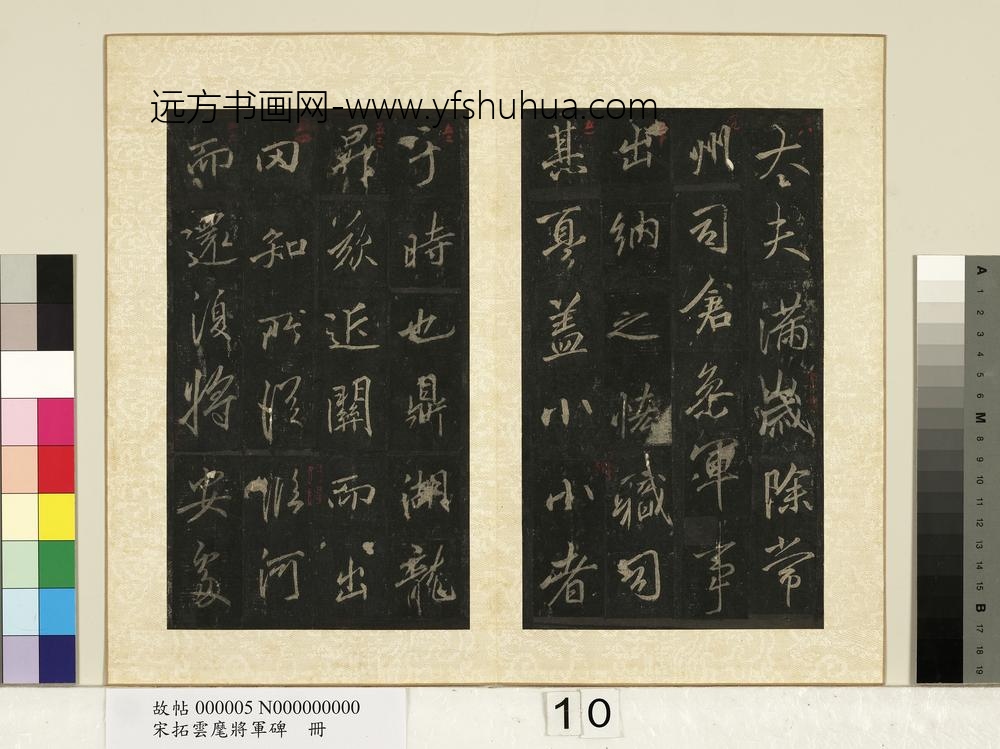 远方书画网-www.yfshuhua.com
太夫滿歲除常
州司倉參軍事
出納之恡職司
其盖小小者
于時也鼎湖龍
昇近關而出
罔知所從臨河
而還復將安處
故帖 000005 N000000000
宋拓雲麾將軍碑 冊
10
A 1 2 3 4 5 6 M 8 9 10 11 12 13 14 15 B 17 18 19